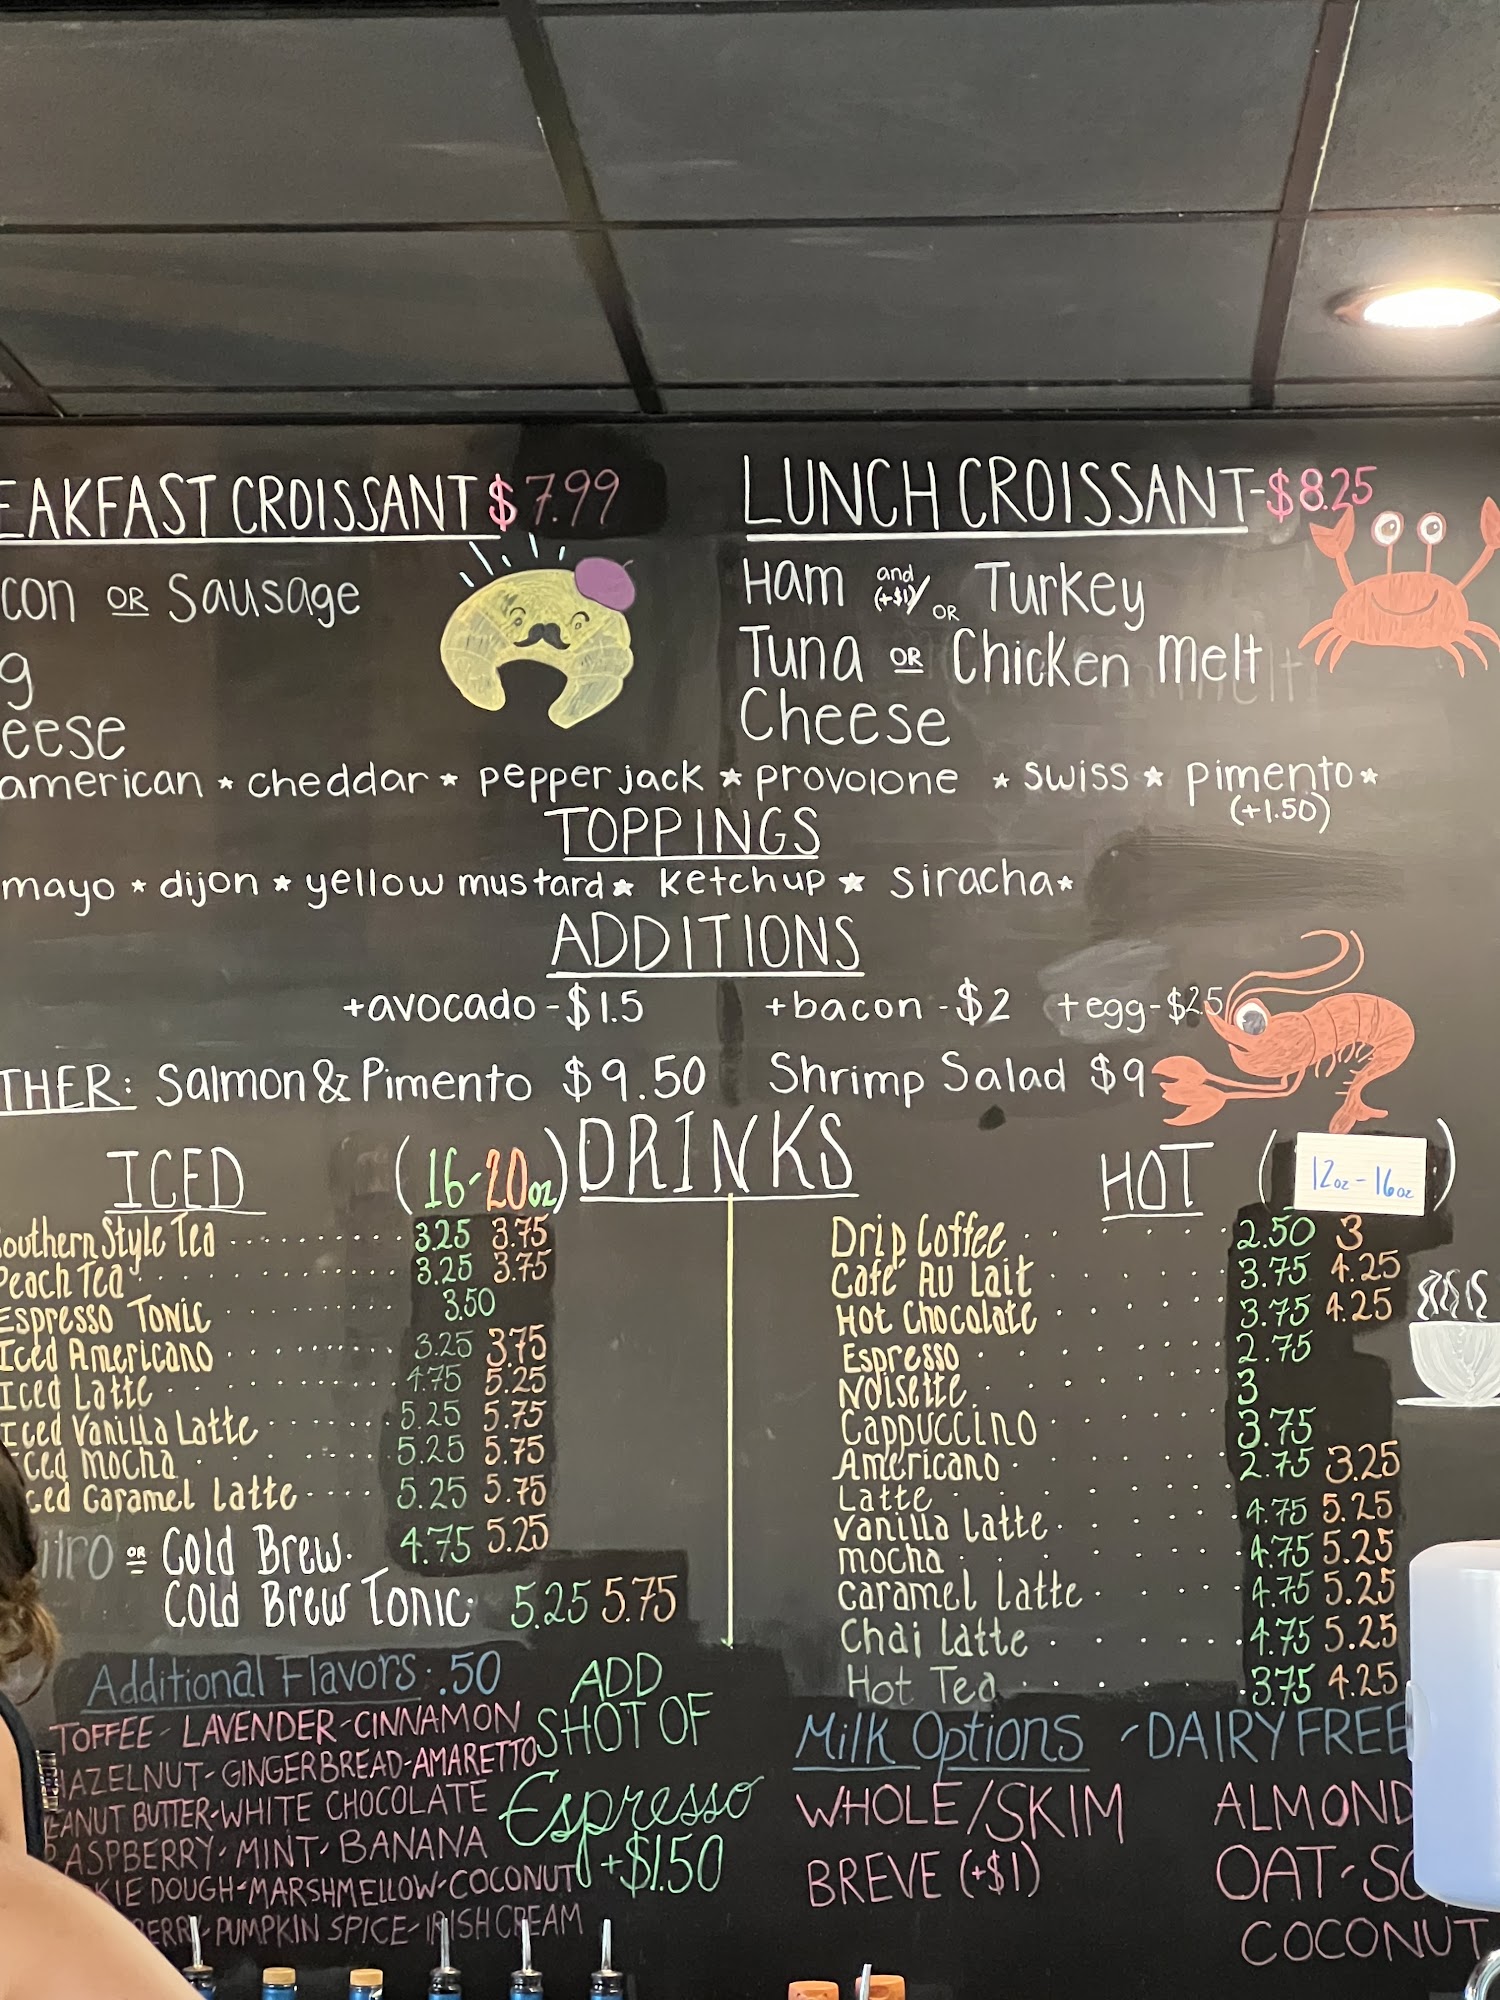 EAKFAST CROISSANT $7.99
con OR Sausage
g
eese
LUNCH CROISSANT-$8.25
Ham and (+$1)/OR Turkey
Tuna OR Chicken melt
Cheese
american * cheddar * pepper jack * provolone * swiss * pimento *
(+1.50)
TOPPINGS
mayo * dijon * yellow mustard * ketchup * siracha *
ADDITIONS
+avocado-$1.5 +bacon-$2 +egg-$2.5
THER: Salmon & Pimento $9.50 Shrimp Salad $9
DRINKS
ICED (16-20oz)
outhern Style Tea 3.25 3.75
Peach Tea 3.25 3.75
Espresso Tonic 3.50
Iced Americano 3.25 3.75
Iced Latte 4.75 5.25
Iced Vanilla Latte 5.25 5.75
ced mocha 5.25 5.75
ced Caramel Latte 5.25 5.75
itro OR Cold Brew 4.75 5.25
Cold Brew Tonic 5.25 5.75
HOT (12oz-16oz)
Drip Coffee 2.50 3
Café Au Lait 3.75 4.25
Hot Chocolate 3.75 4.25
Espresso 2.75
Noisette 3
Cappuccino 3.75
Americano 2.75 3.25
Latte 4.75 5.25
Vanilla Latte 4.75 5.25
mocha 4.75 5.25
Caramel Latte 4.75 5.25
Chai Latte 3.75 4.25
Hot Tea
Additional Flavors: .50
TOFFEE-LAVENDER-CINNAMON
AZELNUT-GINGERBREAD-AMARETTO
EANUT BUTTER-WHITE CHOCOLATE
RASPBERRY-MINT-BANANA
KIE DOUGH-MARSHMELLOW-COCONUT
BERRY-PUMPKIN SPICE-IRISH CREAM
ADD
SHOT OF
Espresso
+$1.50
Milk Options -DAIRY FREE
WHOLE/SKIM ALMOND
BREVE (+$1) OAT-SO
COCONUT